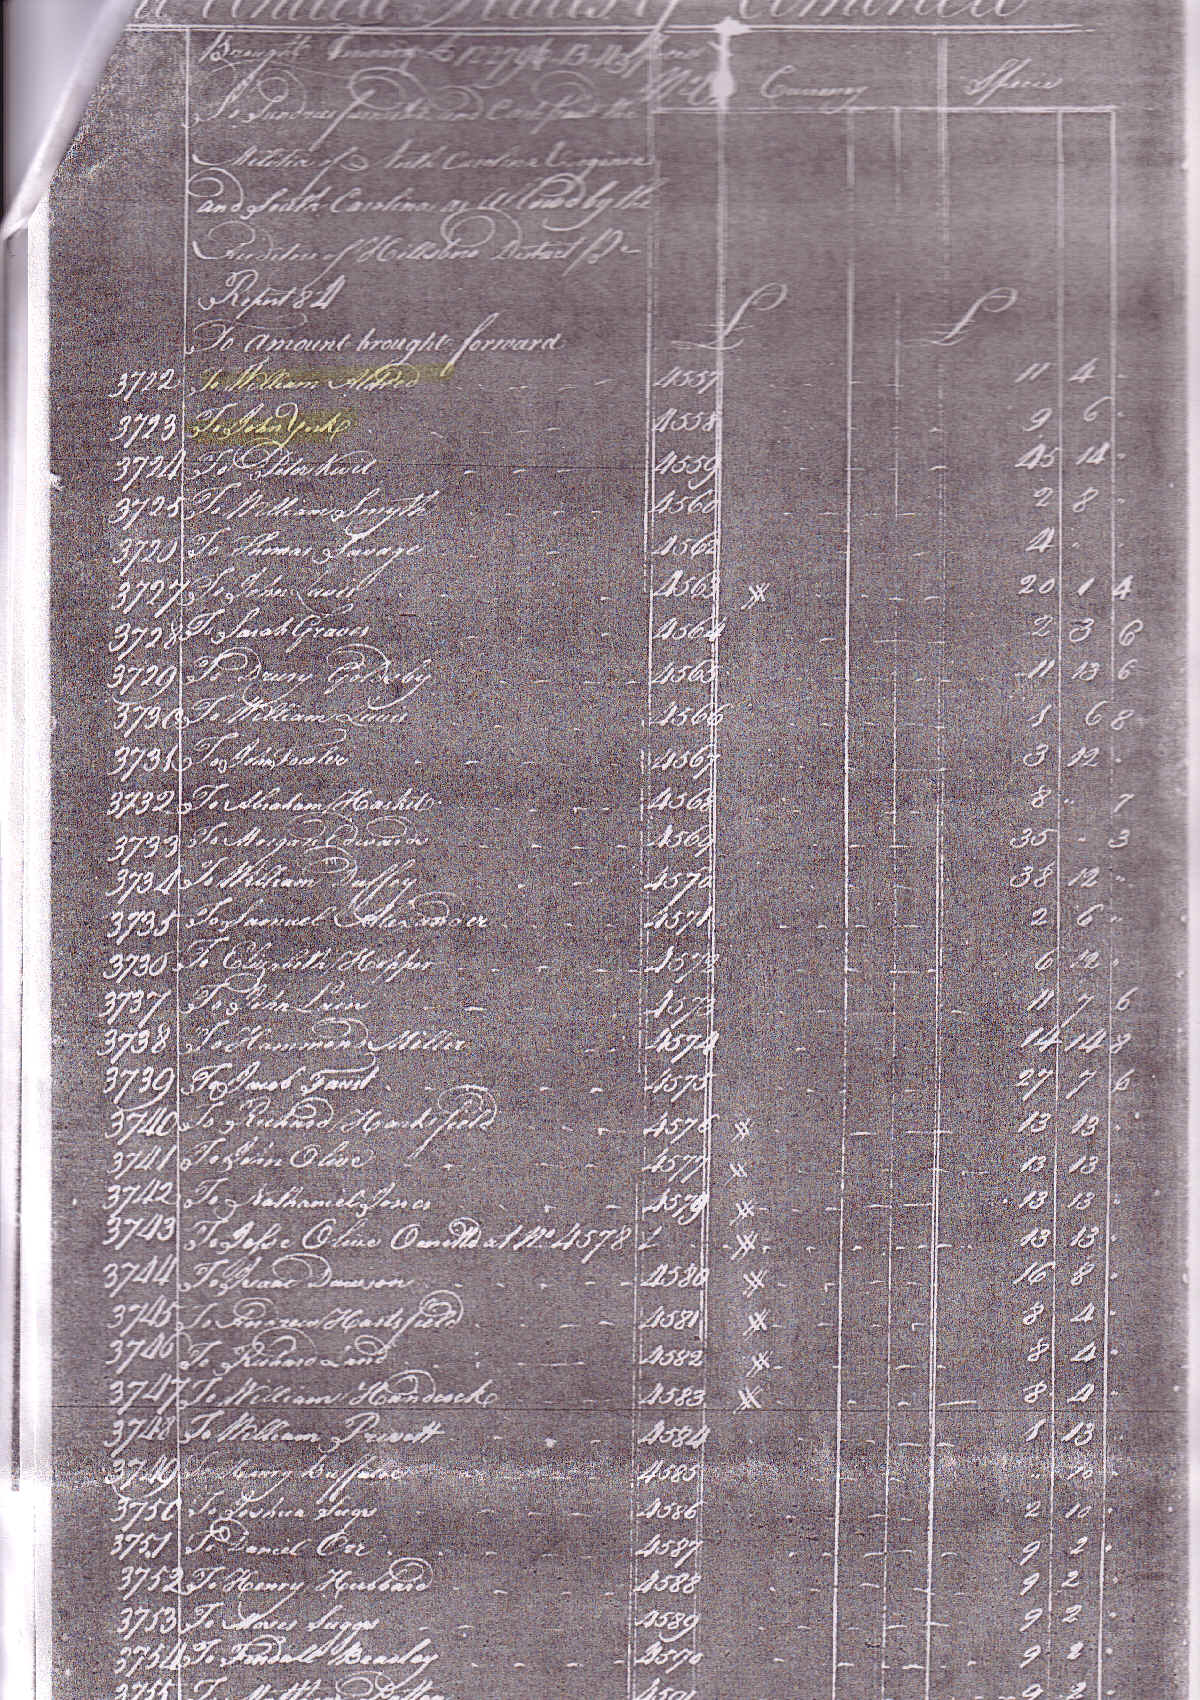 United States Continued
Brought
Currency Specie
To Sundries furnished and Cash paid the
Militia of North Carolina Virginia
and South Carolina as Allowed by the
Auditors of Hillsboro District pr
Report 84
To Amount brought forward £ £
3722 To William Aldred 4557 11 4 "
3723 To John York 4558 9 6 "
3724 To Peter 4559 45 14 "
3725 To William Smyth 4560 2 8 "
3726 To Thomas Savage 4562 4 " "
3727 To John 4563 20 1 4
3728 To Sarah Graves 4564 2 3 6
3729 To Drury 4565 11 13 6
3730 To William 4566 1 6 8
3731 To 4567 3 12 "
3732 To Abraham 4568 8 " 7
3733 To Morgan Edwards 4569 35 - 3
3734 To William Duffey 4570 38 12 "
3735 To Samuel Alexander 4571 2 6 "
3736 To Elizabeth Hopper 4572 6 12 "
3737 To John 4573 11 7 6
3738 To Hammond Miller 4574 14 14
3739 To Jacob Faust 4575 27 7 6
3740 To Richard Hartsfield 4576 13 13 "
3741 To Olive 4577 13 13 "
3742 To Nathaniel Jones 4579 13 13 "
3743 To Jesse Olive Omitted at No 4578 13 13 "
3744 To Isaac Dawson 4580 16 8 "
3745 To Andrew Hartsfield 4581 8 4 "
3746 To Richard Land 4582 8 4 "
3747 To William 4583 8 4 "
3748 To William Prewett 4584 1 13 "
3749 To 4585 " 10 "
3750 To Joshua Suggs 4586 2 10 "
3751 To Daniel Orr 4587 9 2 "
3752 To Henry Hubbard 4588 9 2 "
3753 To Moses Suggs 4589 9 2 "
3754 To Beasley 9 2 "
3755 To 4591 9 2 "